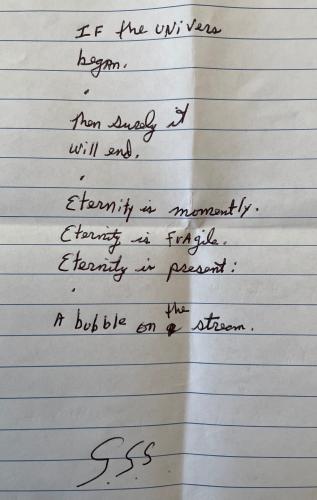 IF the UNIvers
began.
.
Then surely it
will end.
.
Eternity is momently.
Eternity is FrAgile.
Eternity is present:
.
A bubble on the stream.
G.S.S